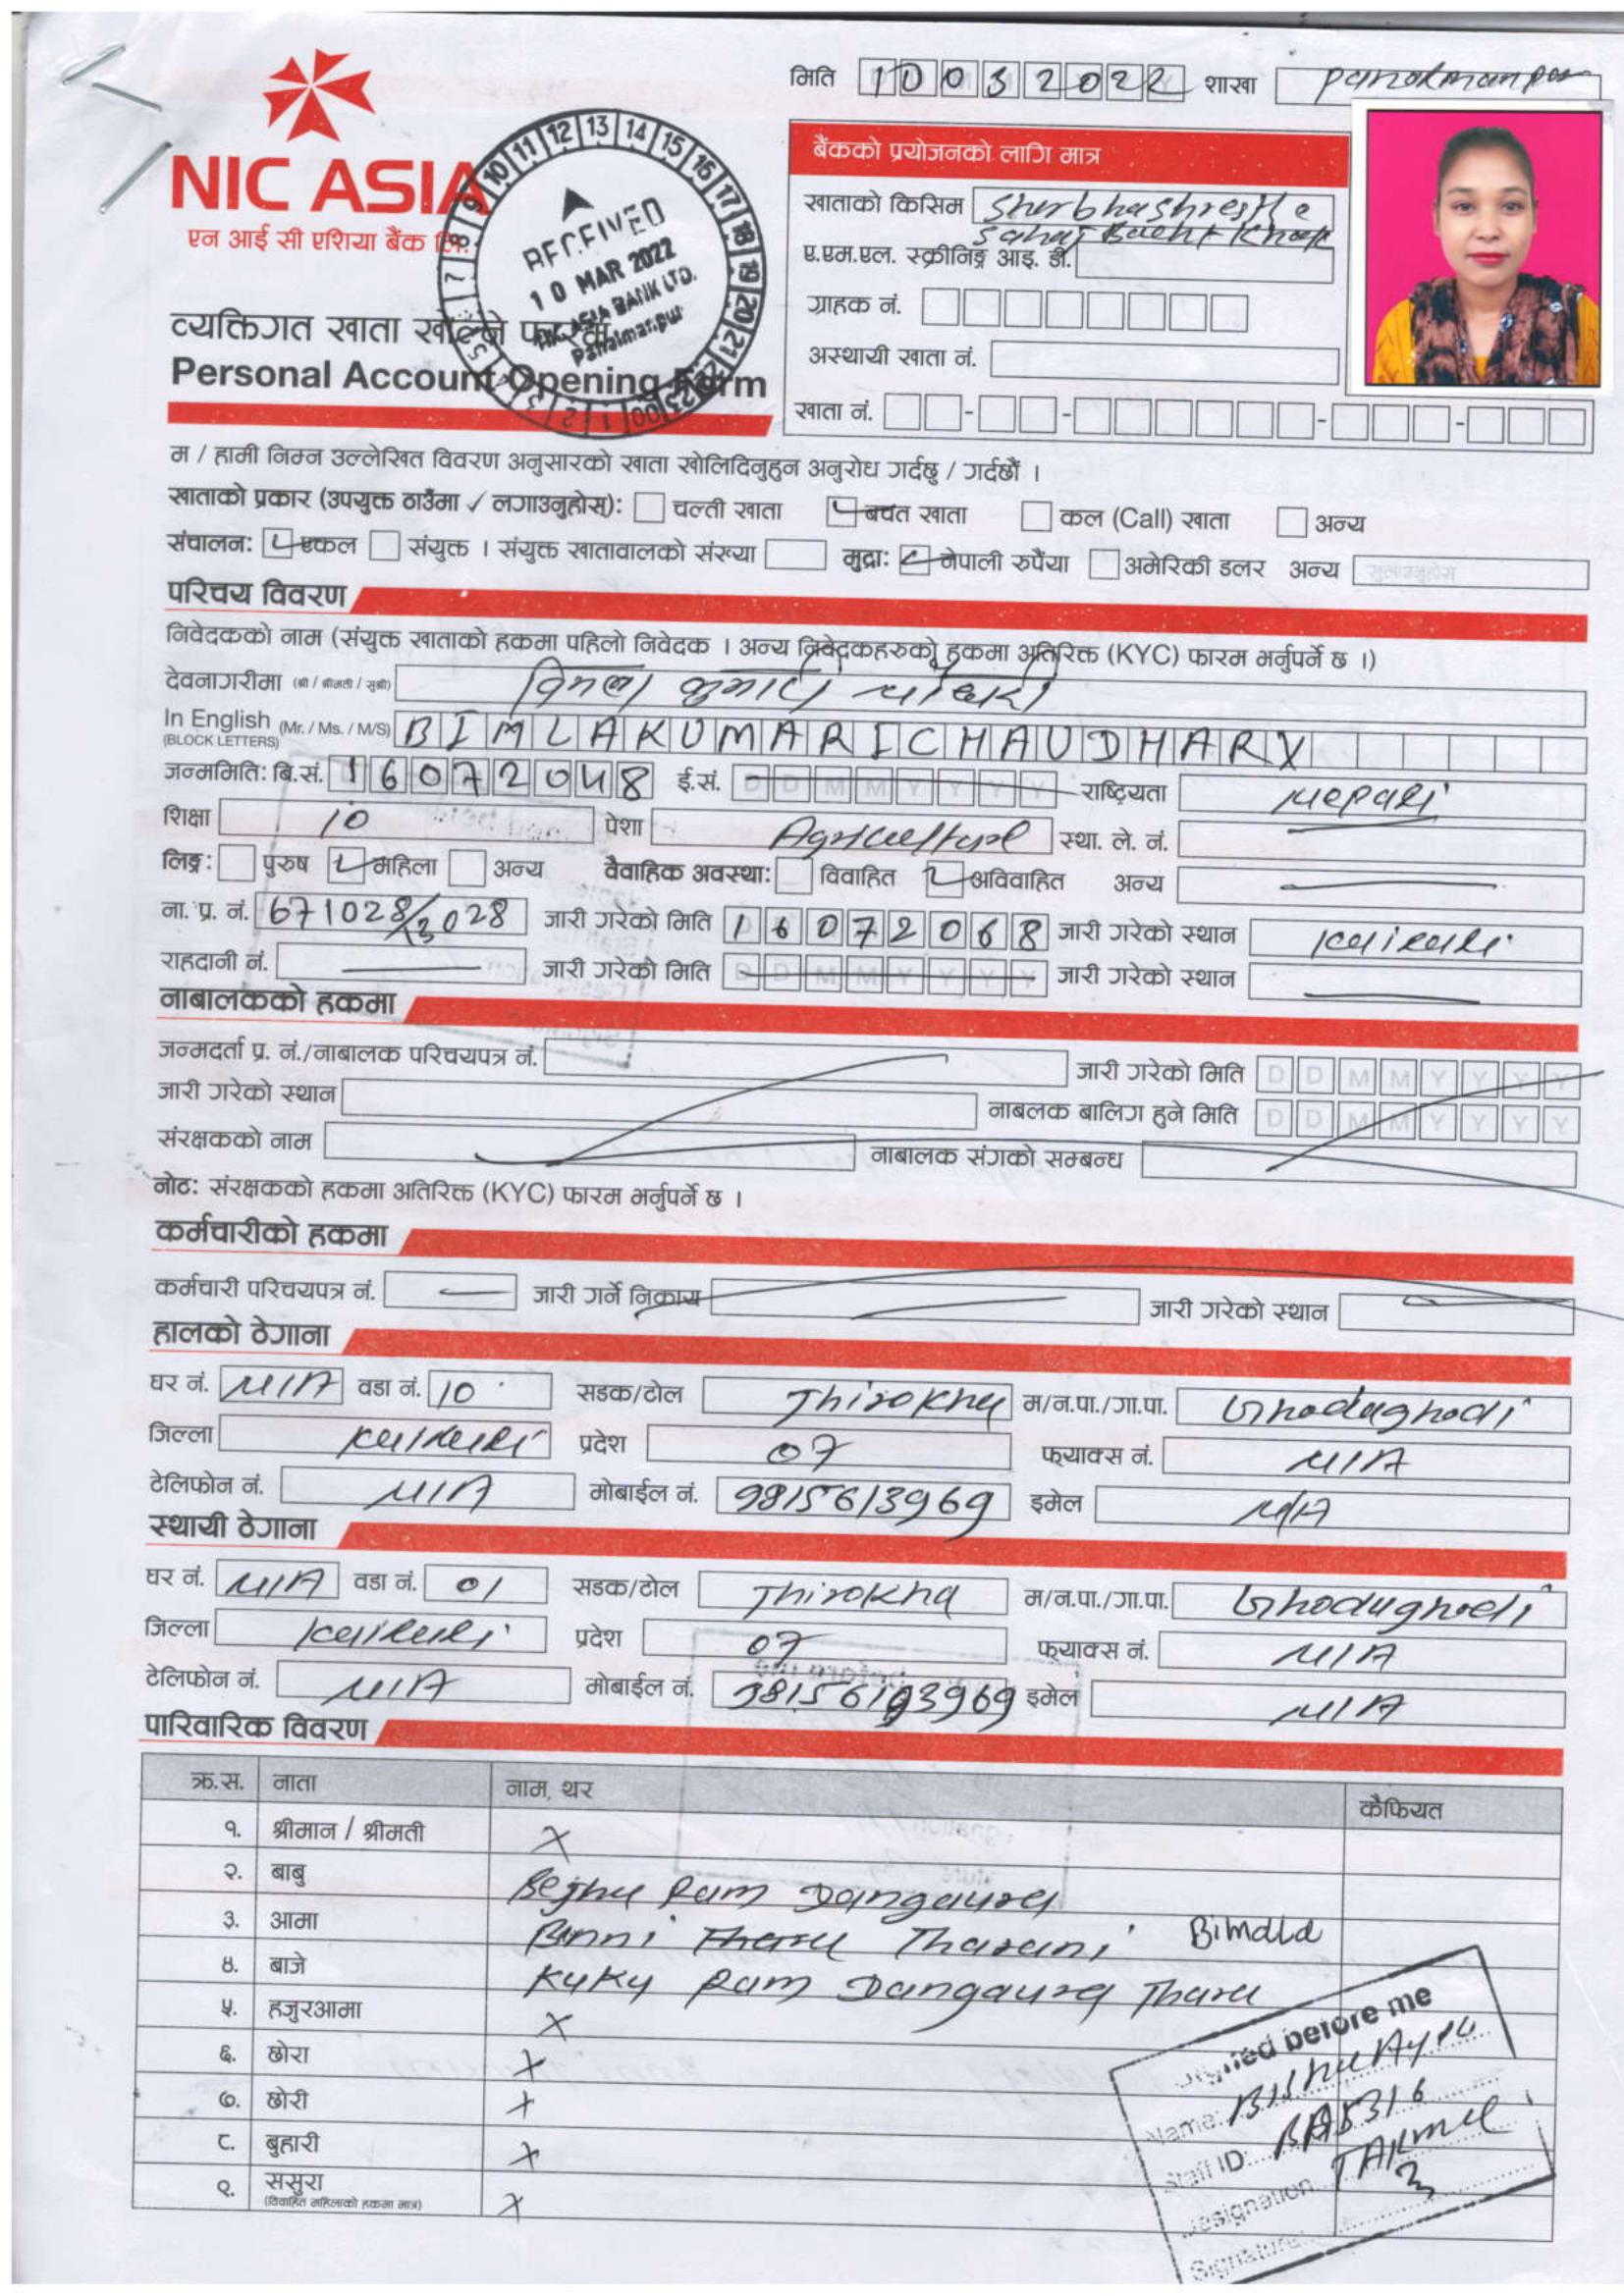 मिति 10032022 शाखा
NIC ASIA
एन आई सी एशिया बैंक लि.
RECEIVED
10 MAR 2022
NIC ASIA BANK LTD.
Panalmanpur
बैंकको प्रयोजनको लागि मात्र
खाताको किसिम
ए.एम.एल. स्क्रीनिङ्ग आइ. डी.
ग्राहक नं.
अस्थायी खाता नं.
खाता नं.
व्यक्तिगत खाता खोल्ने फारम
Personal Account Opening Form
म / हामी निम्न उल्लेखित विवरण अनुसारको खाता खोलिदिनुहुन अनुरोध गर्दछु / गर्दछौं ।
खाताको प्रकार (उपयुक्त ठाउँमा ✓ लगाउनुहोस्): चल्ती खाता बचत खाता कल (Call) खाता अन्य
संचालन: एकल संयुक्त । संयुक्त खातावालको संख्या मुद्रा: नेपाली रुपैंया अमेरिकी डलर अन्य
परिचय विवरण
निवेदकको नाम (संयुक्त खाताको हकमा पहिलो निवेदक । अन्य निवेदकहरुको हकमा अतिरिक्त (KYC) फारम भर्नुपर्ने छ ।)
देवनागरीमा (श्री / श्रीमती / सुश्री) विमला कुमारी चौधरी
In English (Mr. / Ms. / M/S) BIMLA KUMARI CHAUDHARY
(BLOCK LETTERS)
जन्ममिति: बि.सं. 16072048 ई.सं. DDMMYYYY राष्ट्रियता Nepali
शिक्षा 10 पेशा Agriculture स्था. ले. नं.
लिङ्ग: पुरुष महिला अन्य वैवाहिक अवस्था: विवाहित अविवाहित अन्य
ना. प्र. नं. 671028/3028 जारी गरेको मिति 16072068 जारी गरेको स्थान Kailali
राहदानी नं. जारी गरेको मिति DDMMYYYY जारी गरेको स्थान
नाबालकको हकमा
जन्मदर्ता प्र. नं./नाबालक परिचयपत्र नं. जारी गरेको मिति DDMMYYYY
जारी गरेको स्थान नाबलक बालिग हुने मिति DDMMYYYY
संरक्षकको नाम नाबालक संगको सम्बन्ध
नोट: संरक्षकको हकमा अतिरिक्त (KYC) फारम भर्नुपर्ने छ ।
कर्मचारीको हकमा
कर्मचारी परिचयपत्र नं. जारी गर्ने निकाय जारी गरेको स्थान
हालको ठेगाना
घर नं. N/A वडा नं. 10 सडक/टोल Thirokha म/न.पा./गा.पा. Ghodaghodi
जिल्ला Kailali प्रदेश 07 फ्याक्स नं. N/A
टेलिफोन नं. N/A मोबाईल नं. 9815613969 इमेल N/A
स्थायी ठेगाना
घर नं. N/A वडा नं. 01 सडक/टोल Thirokha म/न.पा./गा.पा. Ghodaghodi
जिल्ला Kailali प्रदेश 07 फ्याक्स नं. N/A
टेलिफोन नं. N/A मोबाईल नं. इमेल N/A
पारिवारिक विवरण
क्र.स. नाता नाम, थर कैफियत
१. श्रीमान / श्रीमती X
२. बाबु Bejhu Ram Dangaura
३. आमा Banni Tharu Tharuni
Bimala
४. बाजे Kuky Ram Dangaura Tharu
५. हजुरआमा X
६. छोरा X
७. छोरी X
८. बुहारी X
९. ससुरा X
(विवाहित महिलाको हकमा मात्र)
Signed before me
Name:
Staff ID:
Designation
Signature